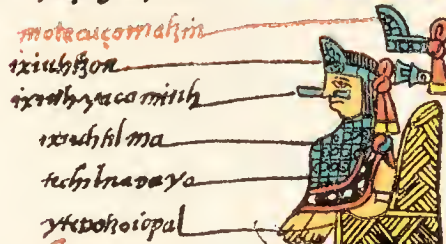 motecuçomatzin
ixiuhtzon
ixiuhyacamiuh
ixiuhtilma
techilnauayo
ytepotzoicpal